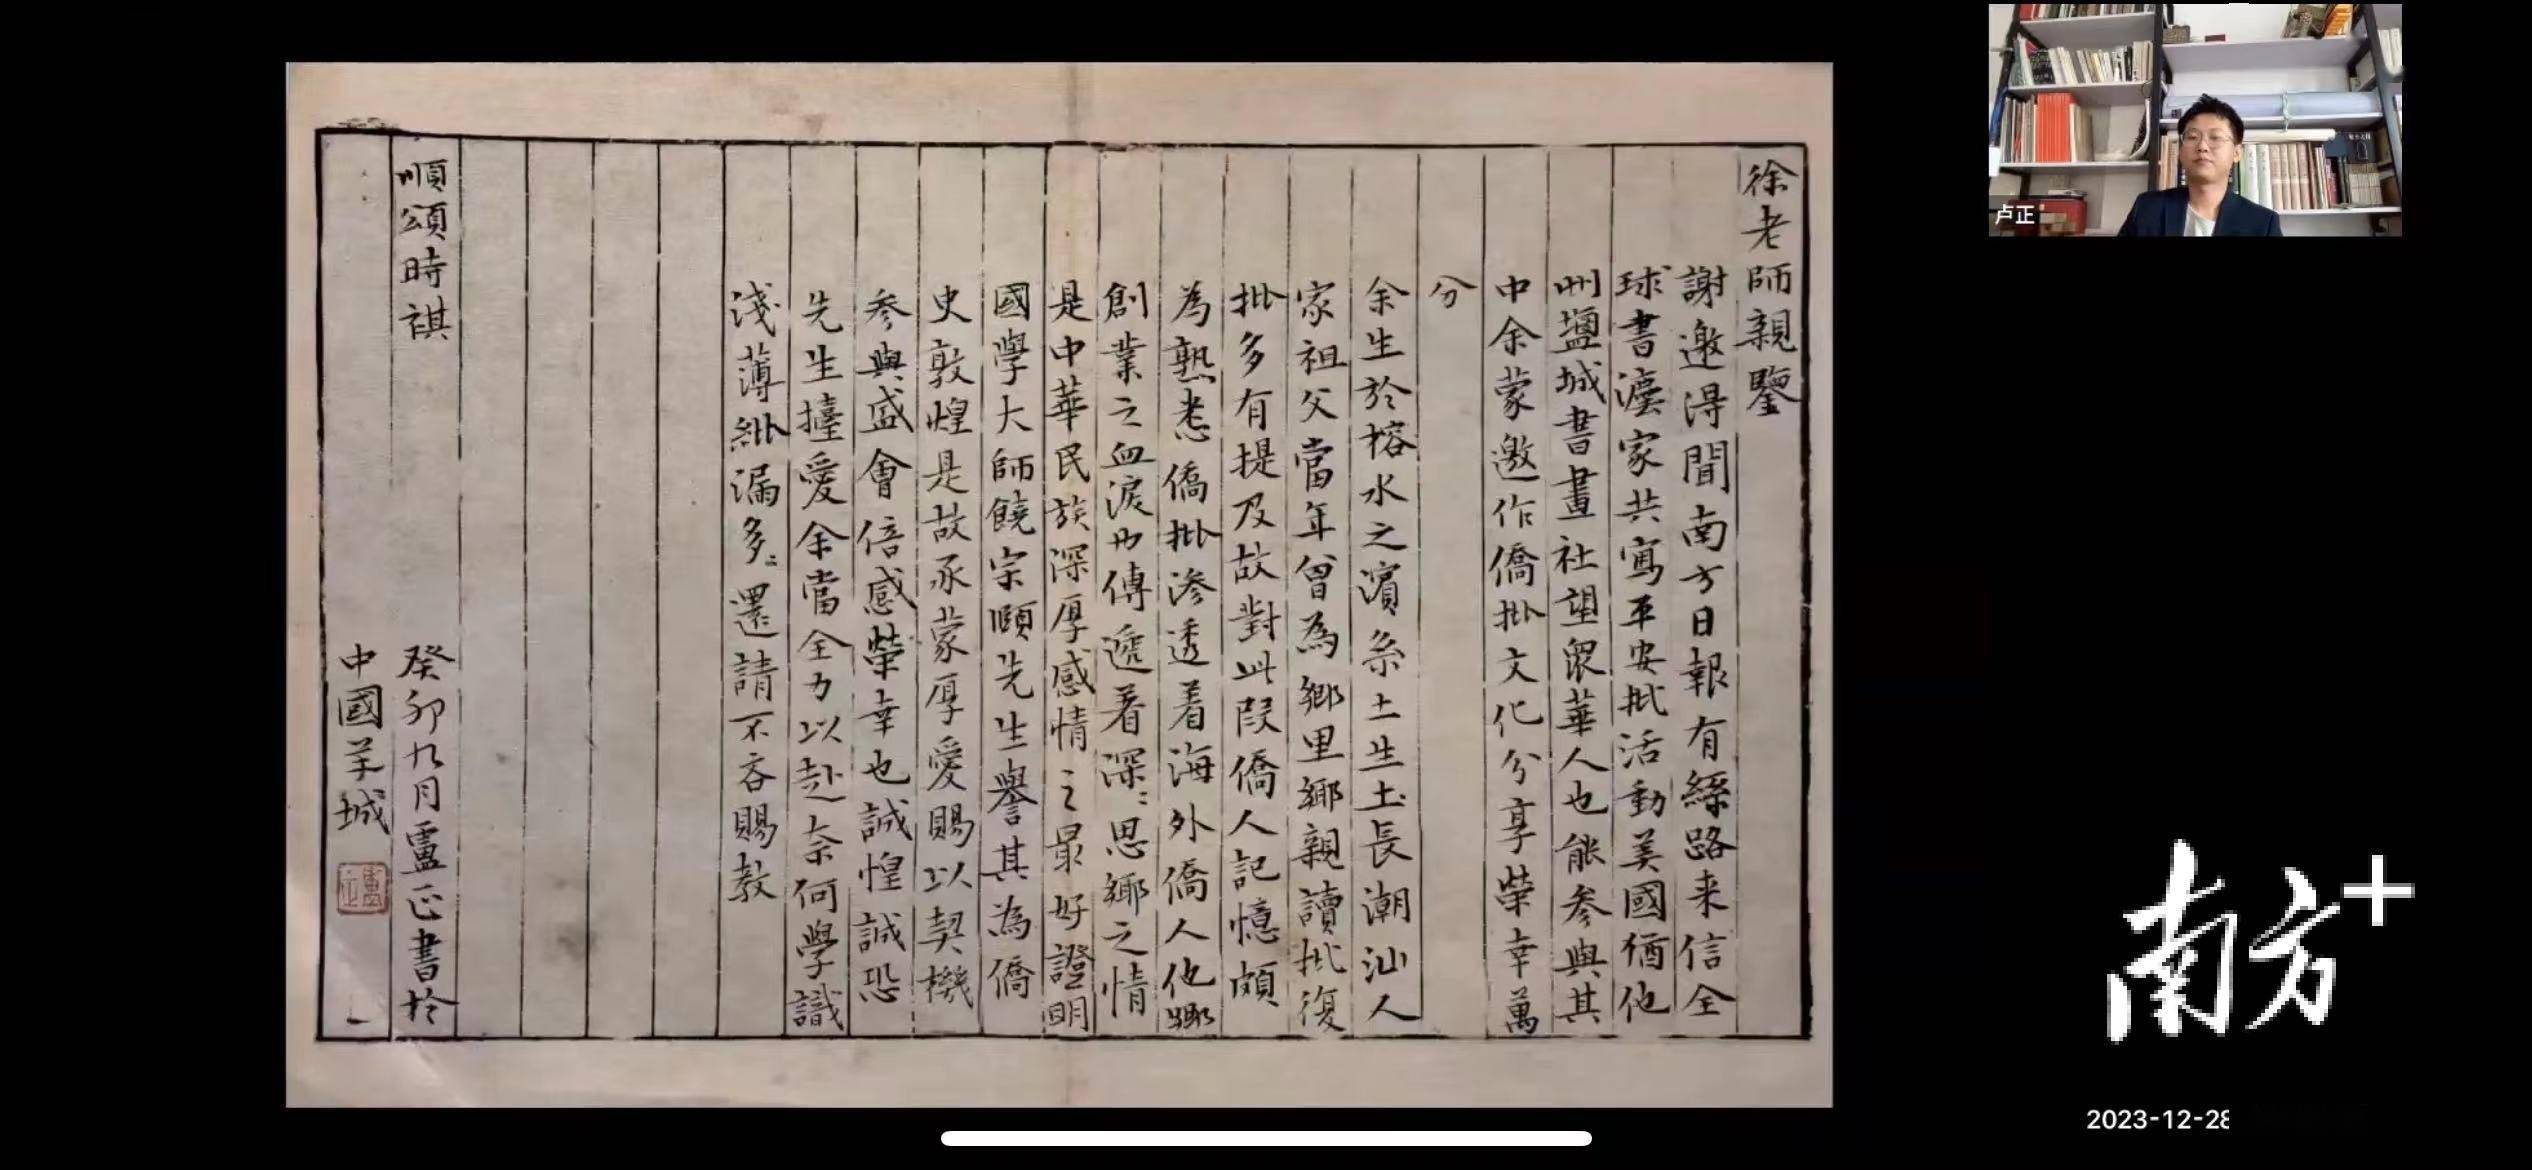 徐老師親鑒
謝邀得聞南方日報有絲路来信全
球書灋家共寫平安批活動美國猶他
州鹽城書畫社望眾華人也能参與其
中余蒙邀作僑批文化分享榮幸萬
分
余生於榕水之濱系土生土長潮汕人
家祖父當年曾為鄉里鄉親讀批復
批多有提及故對此段僑人記憶頗
為熟悉僑批滲透着海外僑人他鄉
創業之血淚也傳遞着深〻思鄉之情
是中華民族深厚感情之最好證明
國學大師饒宗頤先生譽其為僑
史敦煌是故承蒙厚愛賜以契機
参與盛會倍感榮幸也誠惶誠恐
先生擡愛余當全力以赴奈何學識
淺薄紕漏多〻還請不吝賜教
順頌時祺
癸卯九月盧正書於
中國羊城
盧正
卢正
南方+
2023-12-28